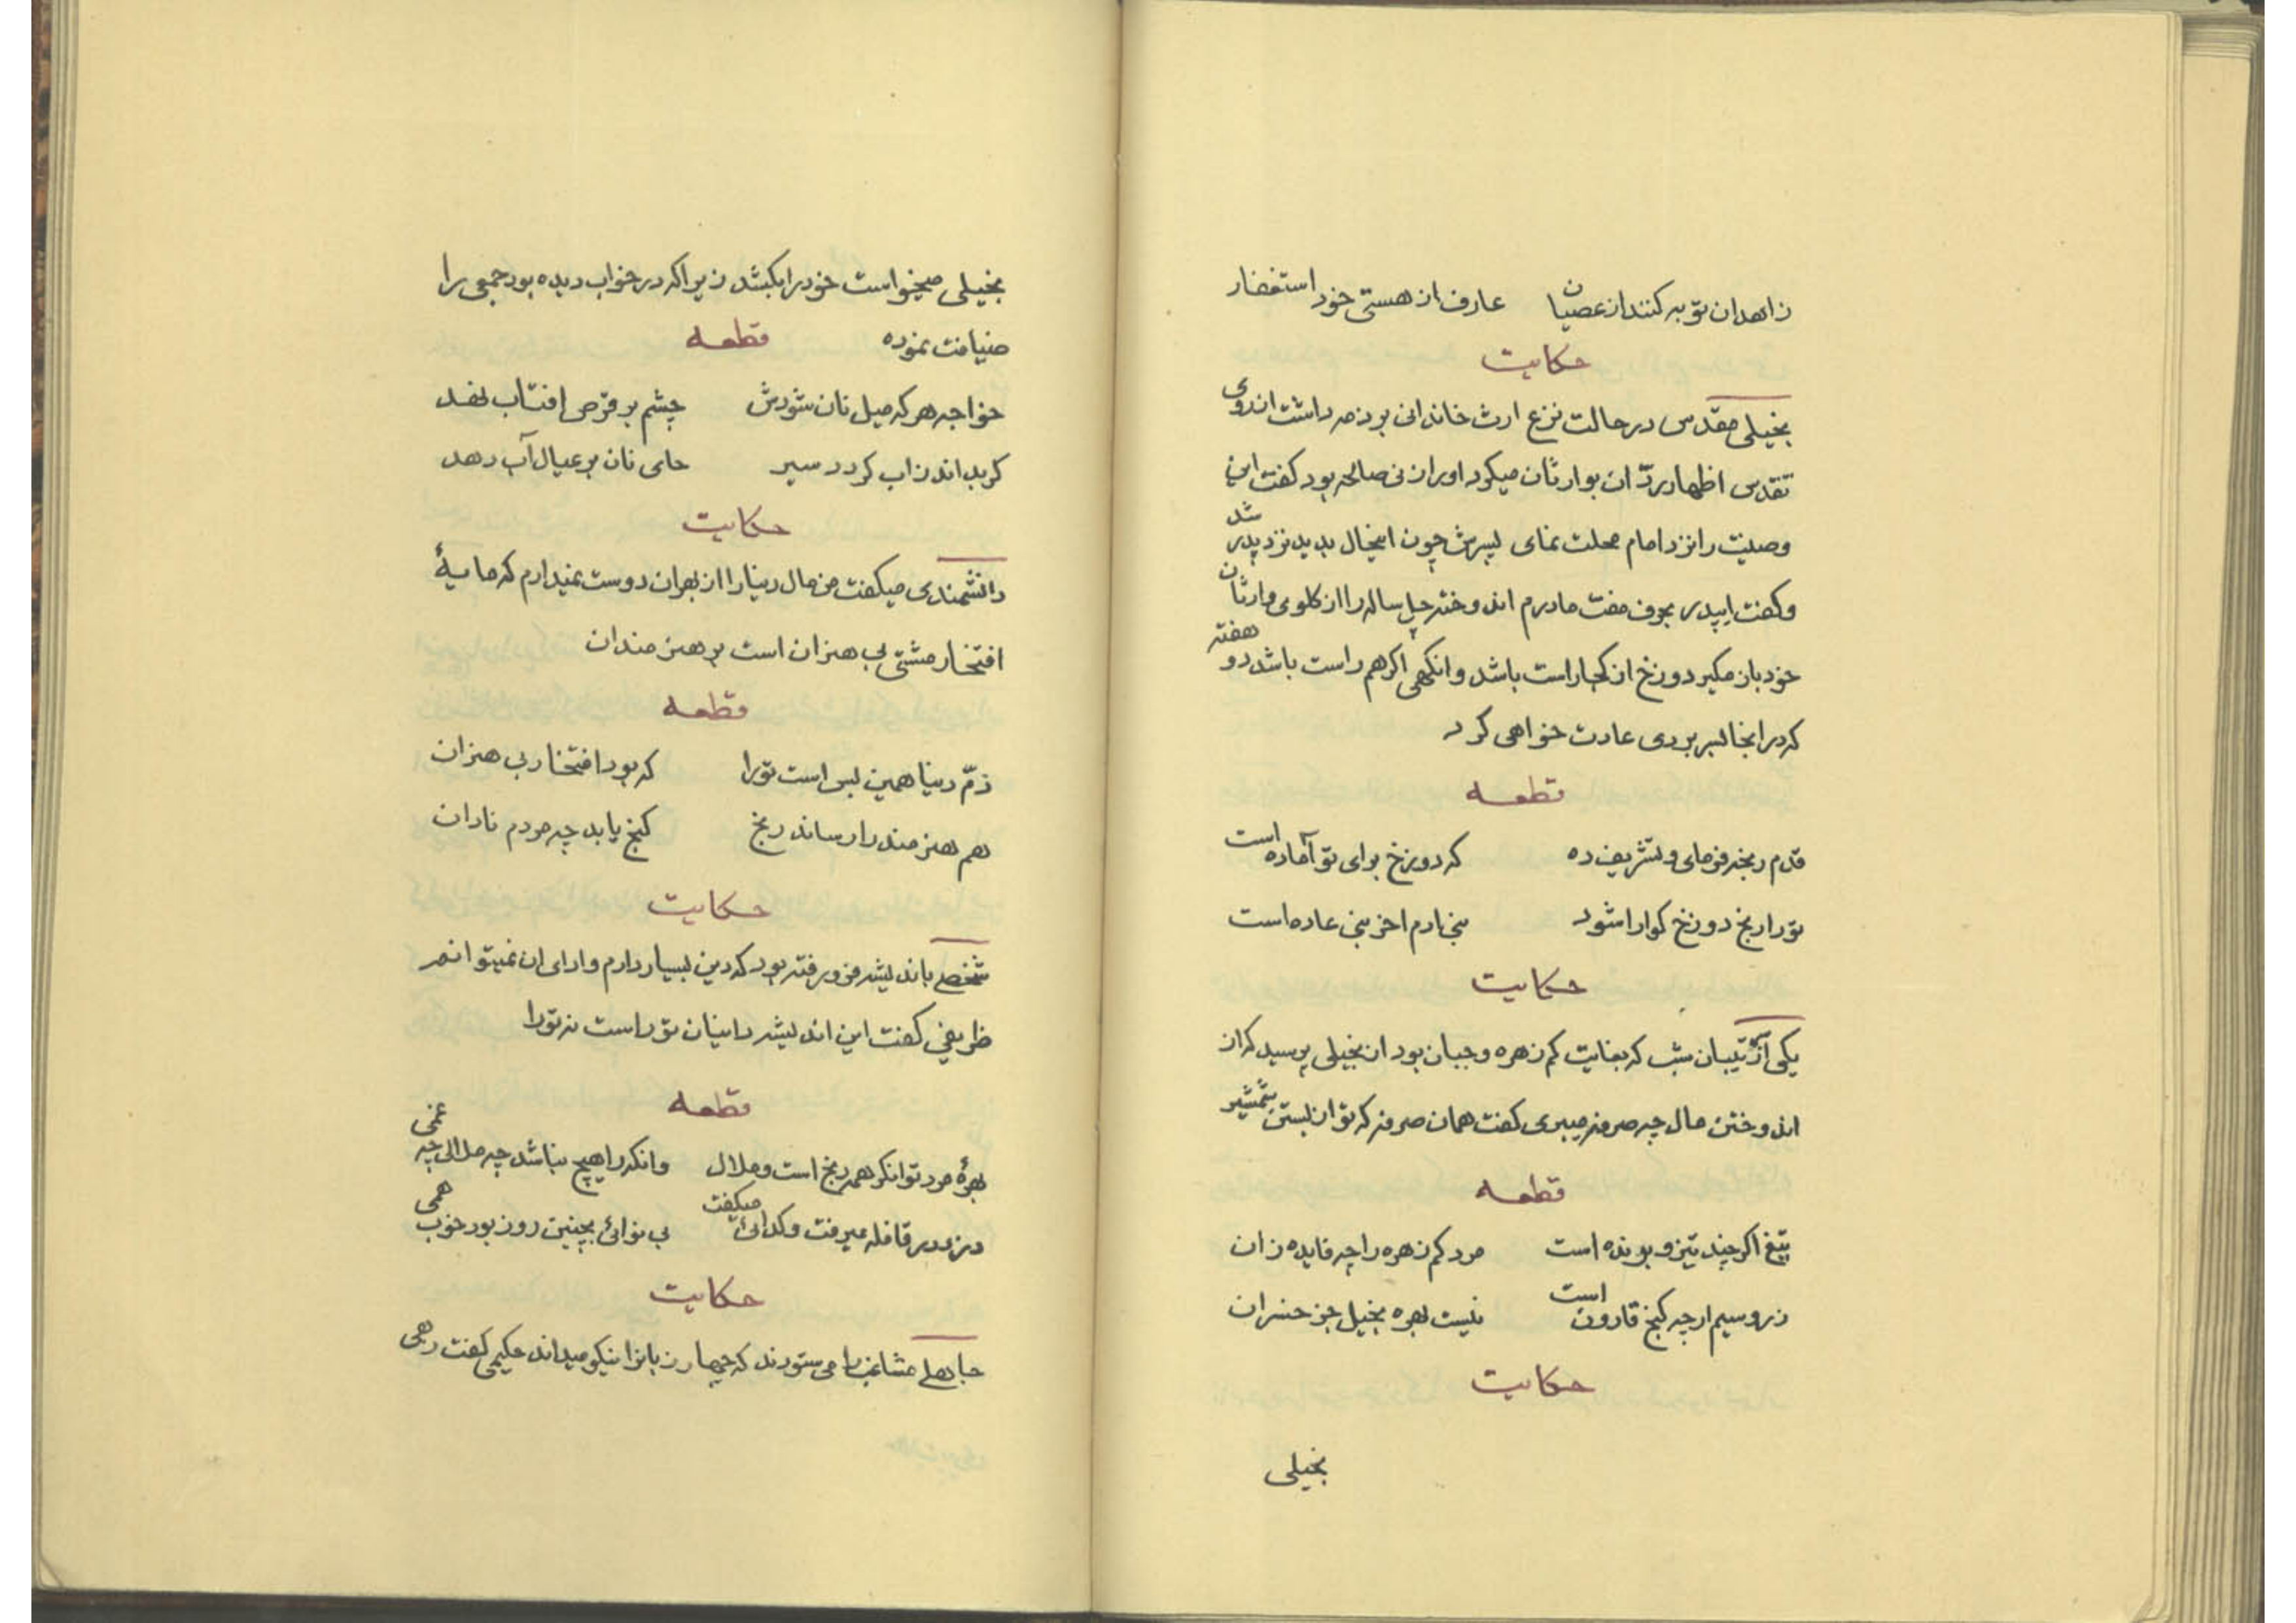 زاهدان توبه کنند از عصیان عارف از هستی خود استغفار
حکایت
بخیلی مقدس در حالت نزع ارث خاندانی بر ذمه داشت از روی
تقدس اظهار ردّ ان بوارثان میکرد اورا زنی صالحه بود کفت این
وصیت را نزد امام محلت نمای پسرش چون اینحال بدید نزد پدر شد
و کفت ایپدر بحرف مفت مادرم اندوخته چهل ساله را از کلوی وارثان
خود باز مکیر دوزخ از کجا راست باشد وانکهی اکر هم راست باشد دو هفته
که در انجا بسر بردی عادت خواهی کرد
قطعه
قدم رنجه فرمای و تشریف ده که دوزخ برای تو آماده است
تو را رنج دوزخ کوارا شود بنی ادم اخر بنی عاده است
حکایت
یکی از نقیبان شب که بغایت کم زهره و جبان بود از بخیلی پرسید که از
اندوختن مال چه صرفه میبری کفت همان صرفه که تو از بستن شمشیر
قطعه
تیغ اکر چند تیز و برنده است مرد کم زهره را چه فایده زان
زر و سیم ارچه کنج قارون است نیست بهره بخیل جز خسران
حکایت
بخیلی
بخیلی میخواست خود را بکشد زیرا که در خواب دیده بود جمعی را
ضیافت نموده قطعه
خواجه هر که میل نان شودش چشم بر قرص افتاب نهد
کر بداند ز اب کردد سیر جای نان بر عیال آب دهد
حکایت
دانشمندی میکفت من مال دنیا را از بهر ان دوست نمیدارم که مایهٔ
افتخار مشتی بی هنران است بر هنرمندان
قطعه
ذمّ دنیا همین بس است تو را که بود افتخار بی هنران
هم هنرمند را رساند رنج کنج یابد چه مردم نادان
حکایت
شخصی باندیشه فرو رفته بود که دین بسیار دارم و ادای ان نمیتوانم
ظریفی کفت این اندیشه داینان تو راست نه تو را
قطعه
بهرهٔ مرد توانکر همه رنج است و ملال وانکه را هیچ نباشد چه ملالی چه غمی
دزد در قافله میرفت و کدائی میکفت بی نوائی بچنین روز بود خوب همی
حکایت
جاهلی عشاغب را می ستودند که چهار زبانرا نیکو میداند حکیمی کفت رهی